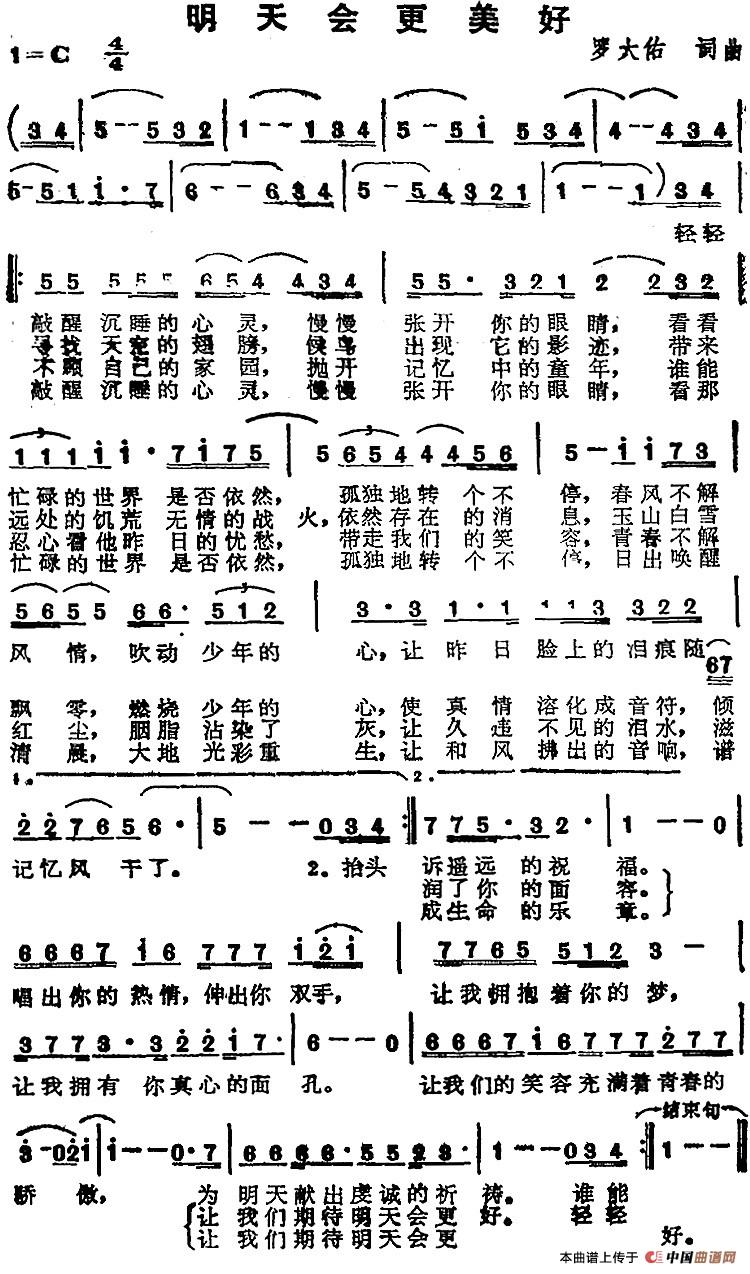 明天会更美好
1=C 4/4 罗大佑 词曲
(34 5--532 1--134 5-5i 534 4--434
5-51i·7 6--634 5-54321 1--1)34
轻轻
55 555 654 434 55· 321 2 232
敲醒 沉睡的心灵，慢慢 张开 你的眼睛，看看
寻找 天定的翅膀，候鸟 出现 它的影迹，带来
不顾 自己的家园，抛开 记忆 中的童年，谁能
敲醒 沉睡的心灵，慢慢 张开 你的眼睛，看那
111ii·7i75 5654 4456 5-ii73
忙碌的世界 是否依然，孤独地转 个不 停，春风不解
远处的饥荒 无情的战 火，依然存在 的消 息，玉山白雪
忍心看他昨 日的忧愁，带走我们 的笑 容，青春不解
忙碌的世界 是否依然，孤独地转 个不 停，日出唤醒
5655 66· 512 3·3 1·1 113 322
风 情，吹动 少年的 心，让昨日 脸上的 泪痕随
67
飘 零，燃烧 少年的 心，使真情 溶化成音符，倾
红 尘，胭脂 沾染了 灰，让久违 不见的泪水，滋
清 晨，大地 光彩重 生，让和风 拂出的音响，谱
1。 2.
227656· 5--034 775·32· 1--0
记忆风 干了。 2。抬头 诉遥远 的祝 福。
润了你 的面 容。
成生命 的乐 章。
6667 i6 777 i2i 7765 5123-
唱出你的热情，伸出你 双手， 让我拥抱着你的梦，
3773·3 22i7· 6--0 6667i67777277
让我拥有 你真心的面 孔。 让我们的笑容充满着青春的
结束句
3·02i i--0·7 6666·5523· 1--034 1--
骄 傲， 为 明天献出虔诚的祈 祷。 谁能
让 我们期待明天会更 好。 轻轻
让 我们期待明天会更 好。
本曲谱上传于 中国曲谱网